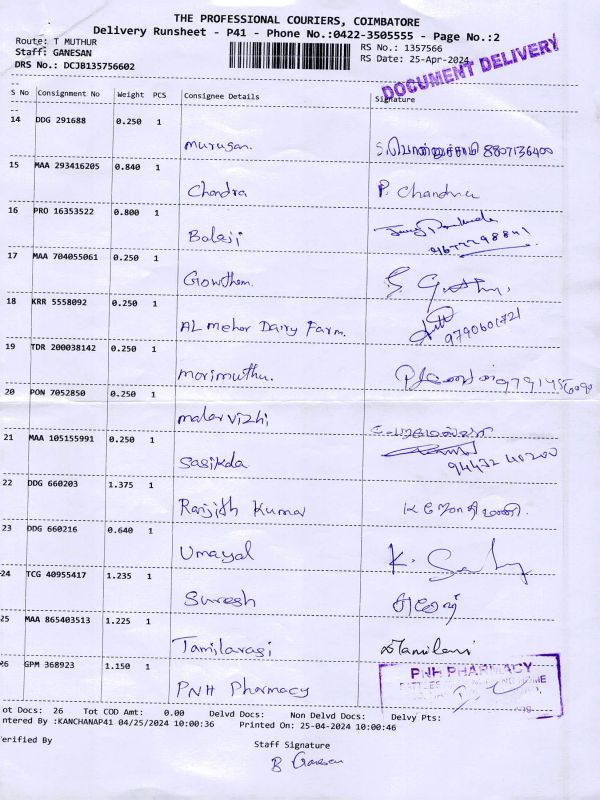 THE PROFESSIONAL COURIERS, COIMBATORE
Delivery Runsheet - P41 - Phone No.:0422-3505555 - Page No.:2
Route: T MUTHUR
Staff: GANESAN
DRS No.: DCJB135756602
RS No.: 1357566
RS Date: 25-Apr-2024
DOCUMENT DELIVERY
S No Consignment No Weight PCS Consignee Details Signature
14 DDG 291688 0.250 1
Murugan. 8807136400
15 MAA 293416205 0.840 1
Chandra P. Chandra
16 PRO 16353522 0.800 1
Balaji
17 MAA 704055061 0.250 1
Gowthem.
18 KRR 5558092 0.250 1
AL Meher Dairy Farm. 9790601721
19 TDR 200038142 0.250 1
Marimuthu.
20 PON 7052850 0.250 1
Malarvizhi
21 MAA 105155991 0.250 1
Sasikala 94432 40200
22 DDG 660203 1.375 1
Ranjith Kumar
23 DDG 660216 0.640 1
Umayal
24 TCG 40955417 1.235 1
Suresh சுரேஷ்
25 MAA 865403513 1.225 1
Tamilarasi
26 GPM 368923 1.150 1
PNH Pharmacy
PNH PHARMACY
ot Docs: 26 Tot COD Amt: 0.00 Delvd Docs: Non Delvd Docs: Delvy Pts:
ntered By :KANCHANAP41 04/25/2024 10:00:36 Printed On: 25-04-2024 10:00:46
erified By
Staff Signature
B Ganesan